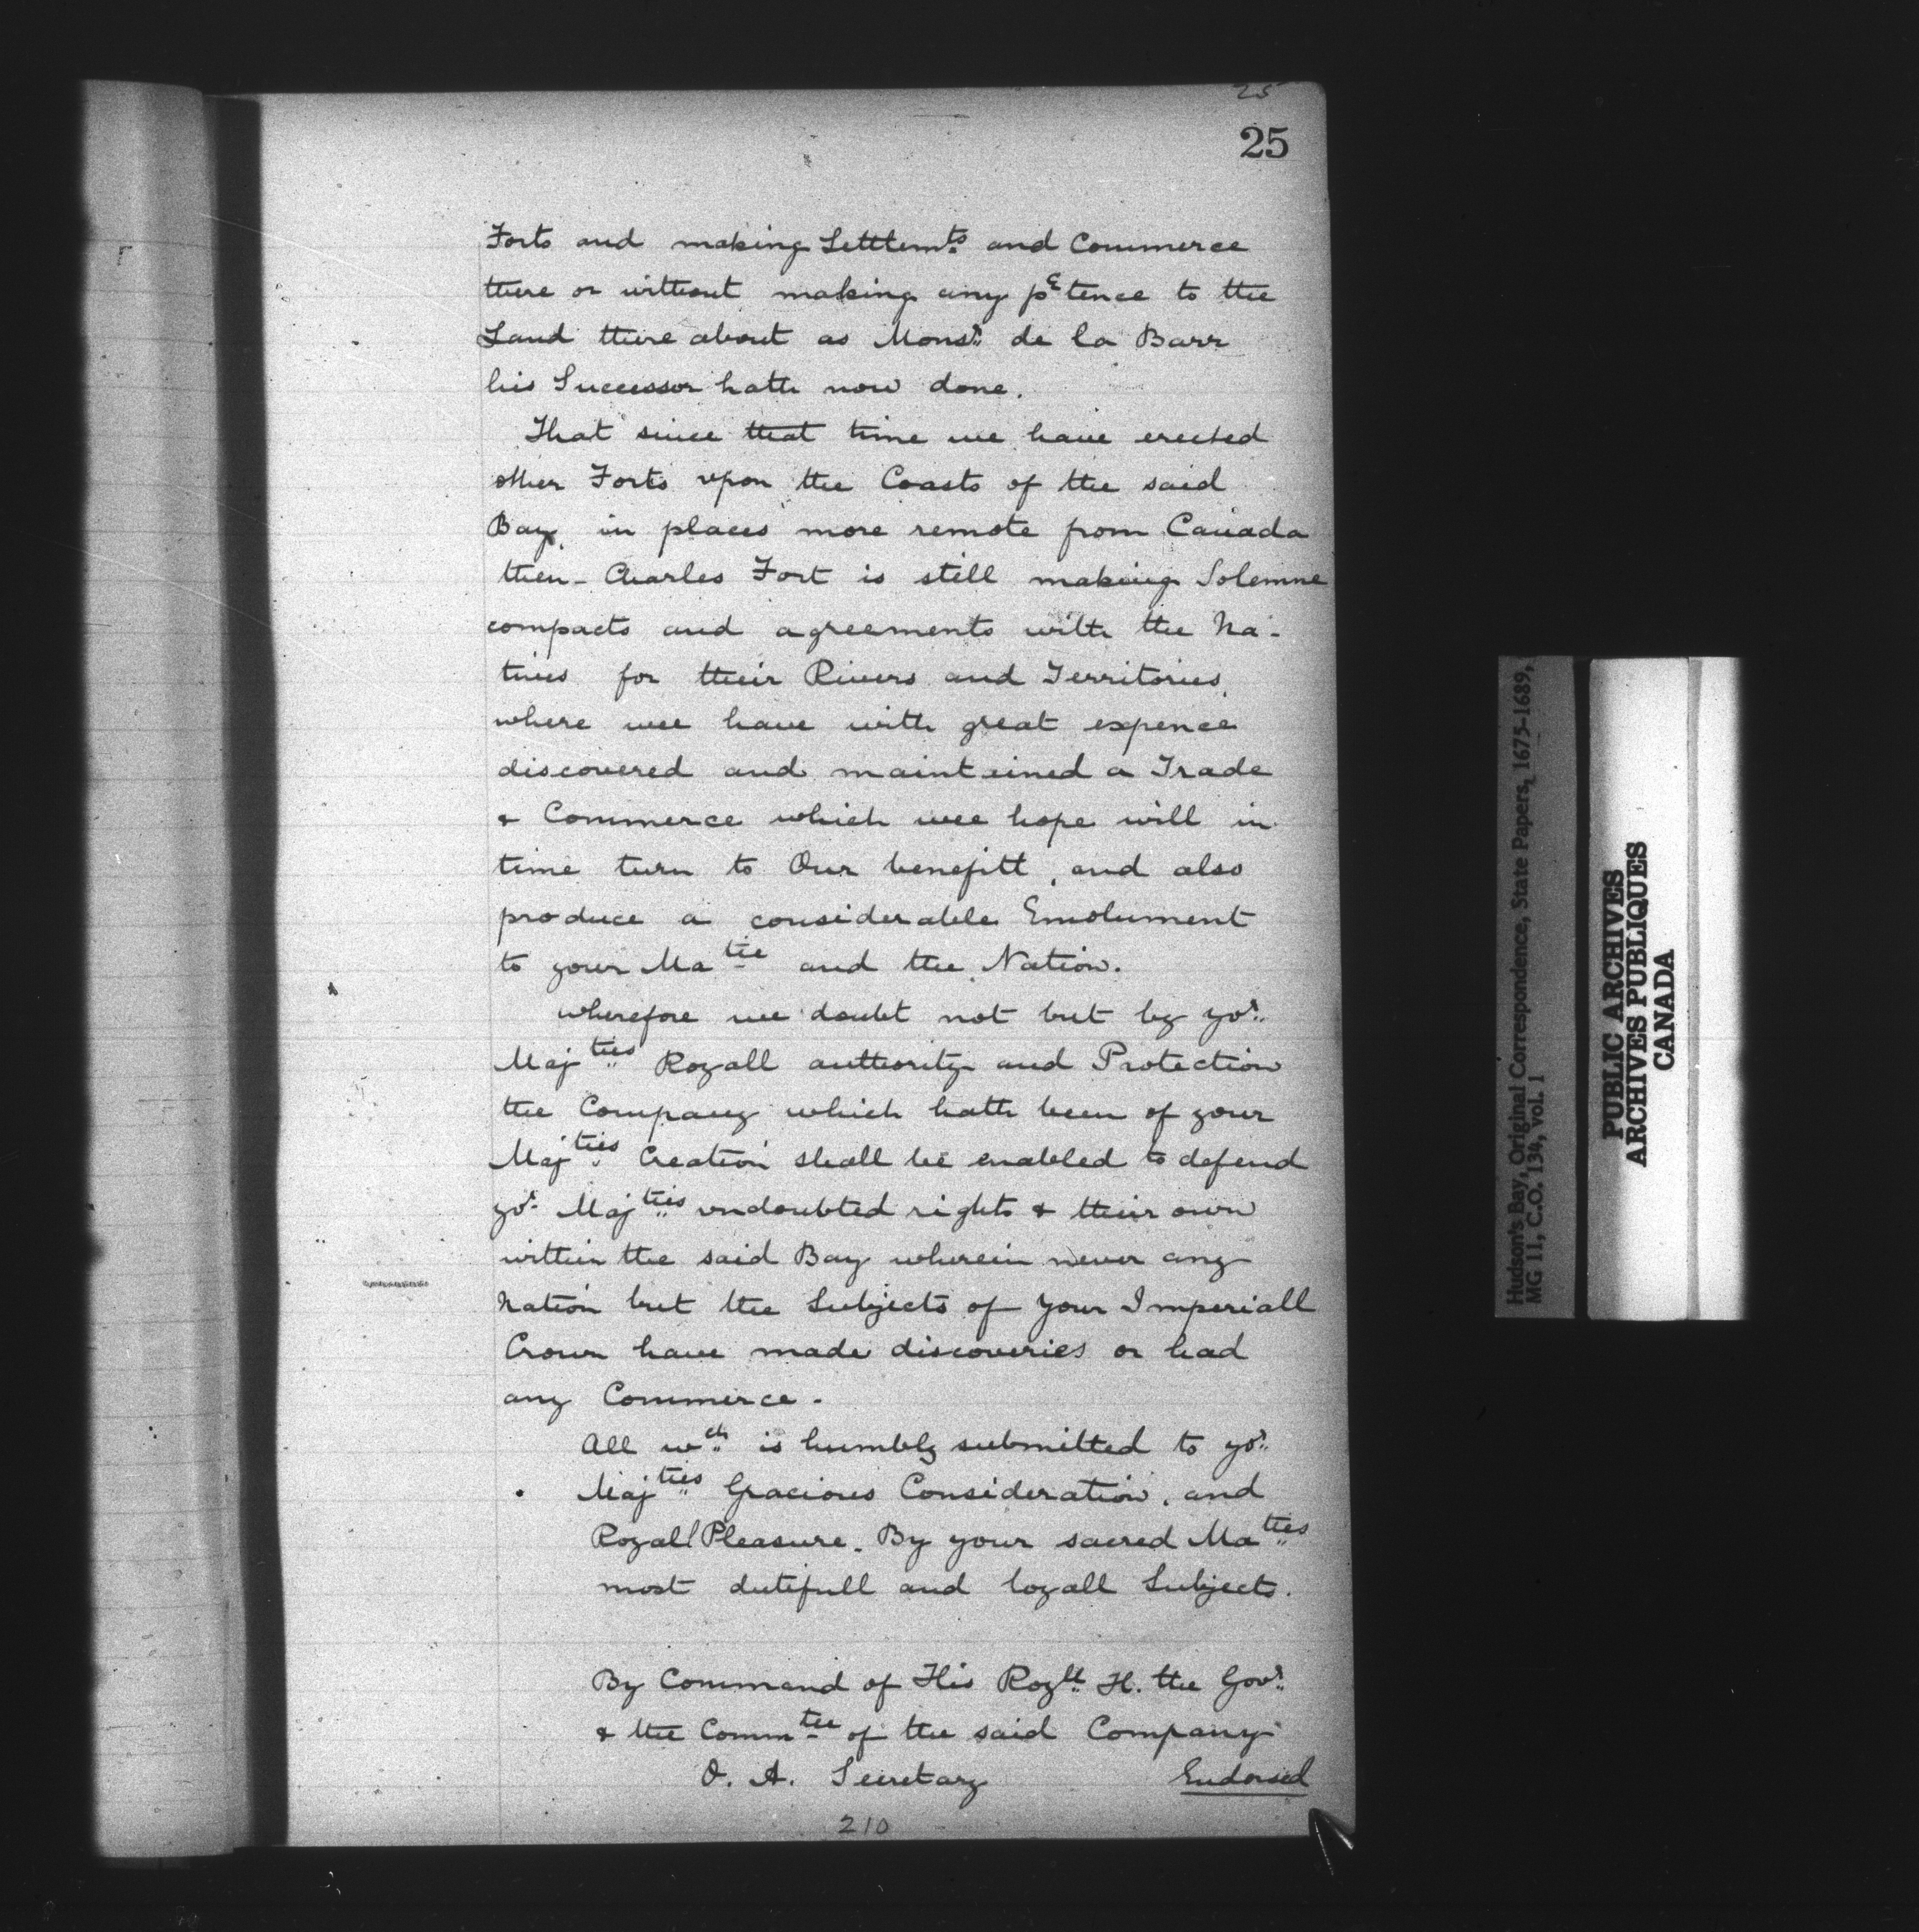 25
25
Forts and making Settlemts and Commerce
there or without making any pᵉtence to the
Land there about as Monsr. de la Barr
his Successor hath now done.
That since that time we have erected
other Forts vpon the Coasts of the said
Bay, in places more remote from Canada
then - Charles Fort is still making Solemne
compacts and agreements with the Na-
tives for their Rivers and Territories,
where wee have with great expence
discovered and maintained a Trade
& Commerce which wee hope will in
time turn to Our benefitt, and also
produce a considerable Emolument
to your Matie and the Nation.
wherefore we doubt not but by yor.
Majties Royall authority and Protection
the Company which hath been of your
Majties Creation shall be enabled to defend
yor. Majties vndoubted rights & their own
within the said Bay wherein never any
Nation but the Subjects of your Imperiall
Crown have made discoveries or had
any Commerce.
All wch. is humbly submitted to yor.
Majties Gracious Consideration, and
Royall Pleasure. By your sacred Maties
most dutifull and loyall Subjects.
By Command of His Royll. H. the Govr.
& the Commtee of the said Company
O. A. Secretary
Endorsed
210
Hudson's Bay, Original Correspondence, State Papers, 1675-1689,
MG 11, C.O. 134, vol. 1
PUBLIC ARCHIVES
ARCHIVES PUBLIQUES
CANADA